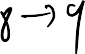 8 → 9